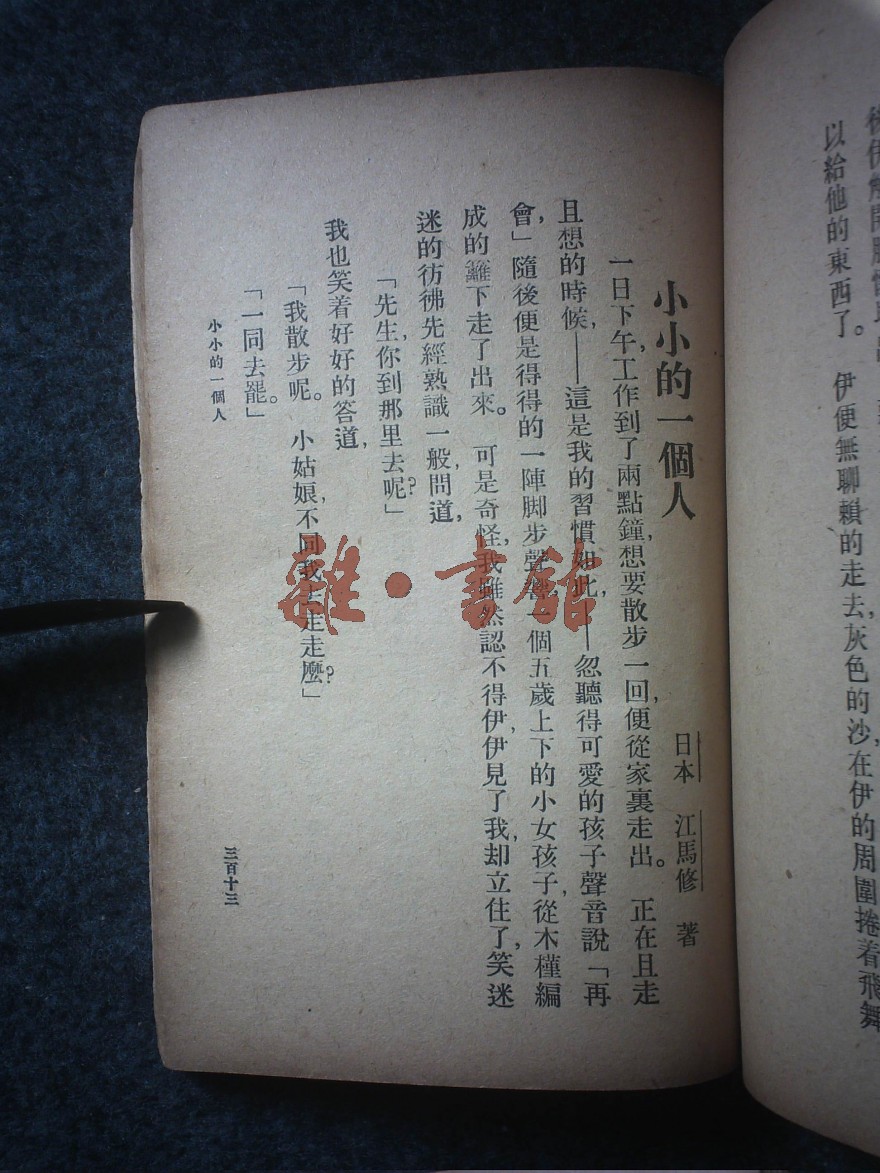 以給他的東西了。 伊便無聊賴的走去,灰色的沙,在伊的周圍捲着飛舞
小小的一個人
日本 江馬修 著
一日下午,工作到了兩點鐘,想要散步一回,便從家裏走出。 正在且走
且想的時候,——這是我的習慣如此,——忽聽得可愛的孩子聲音說「再
會,」隨後便是得得的一陣脚步聲響,一個五歲上下的小女孩子,從木槿編
成的籬下走了出來。 可是奇怪,我雖然認不得伊,伊見了我,却立住了,笑迷
迷的彷彿先經熟識一般,問道,
「先生,你到那里去呢?」
我也笑着好好的答道,
「我散步呢。 小姑娘,不同我去走走麼?」
「一同去罷。」
小小的一個人
三百十三
雜·書館